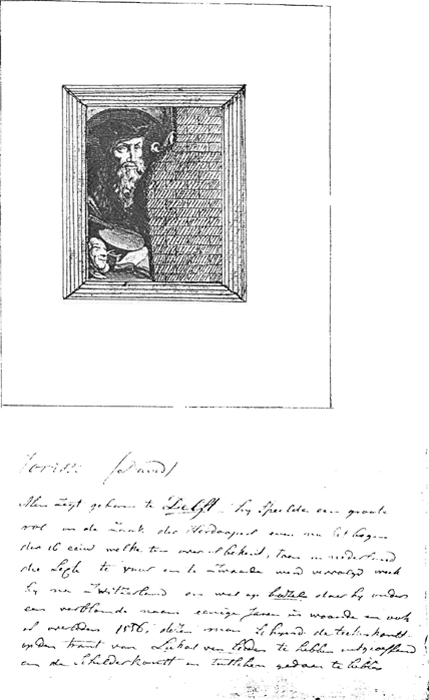 Joris (David)
Men zegt geboren te Delft hij speelde een groote
rol in de zaak der Herdoopers even na het begin
der 16 eeuw welke ten over al bekent, toen in nederland
die Secte te vuur en te zwaarde werd vervolgd week
hij na Zwitserland en wel op bazel daar hij onder
een verbloemde naam eenige Jaren in woonde en ook
is overleden 1556, deze man schijnt de teekenkunst
op den trant van Lukas van Leiden te hebben uitgeoeffend
en de Schilderkunst en te hebben gedaan te hebben